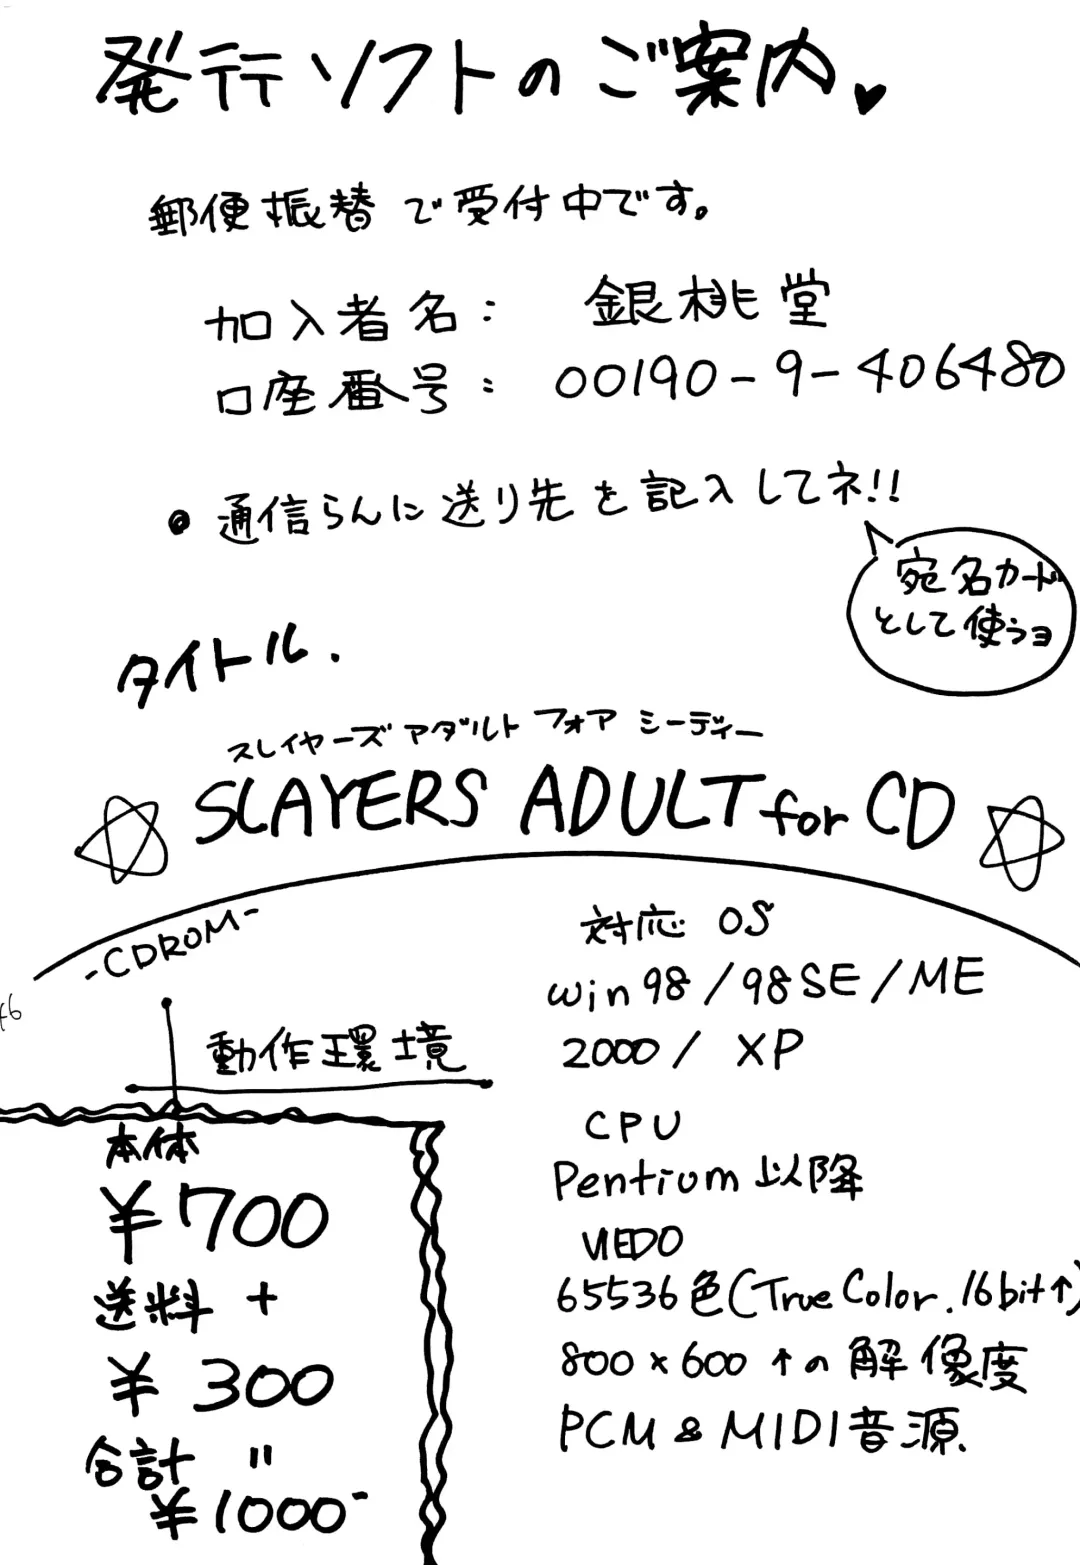 発行ソフトのご案内♥
郵便振替で受付中です。
加入者名: 銀桃堂
口座番号: 00190-9-406480
●通信らんに送り先を記入してネ!!
宛名カード
として使うヨ
タイトル.
スレイヤーズ アダルト フォア シーディー
SLAYERS ADULT for CD
-CDROM-
動作環境
対応 OS
win98/98SE/ME
2000/ XP
CPU
Pentium以降
VIEDO
65536色(True Color.16bit↑)
800×600↑の解像度
PCM & MIDI音源.
本体
¥700
送料 +
¥300
合計 =
¥1000-
46